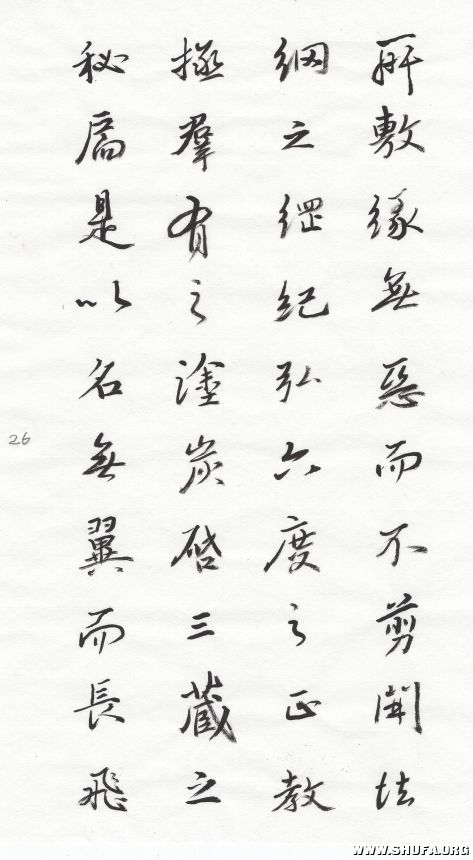 所敷緣無惡而不剪開法
網之綱紀弘六度之正教
拯羣有之塗炭啓三藏之
秘扃是以名無翼而長飛
26
WWW.SHUFA.ORG